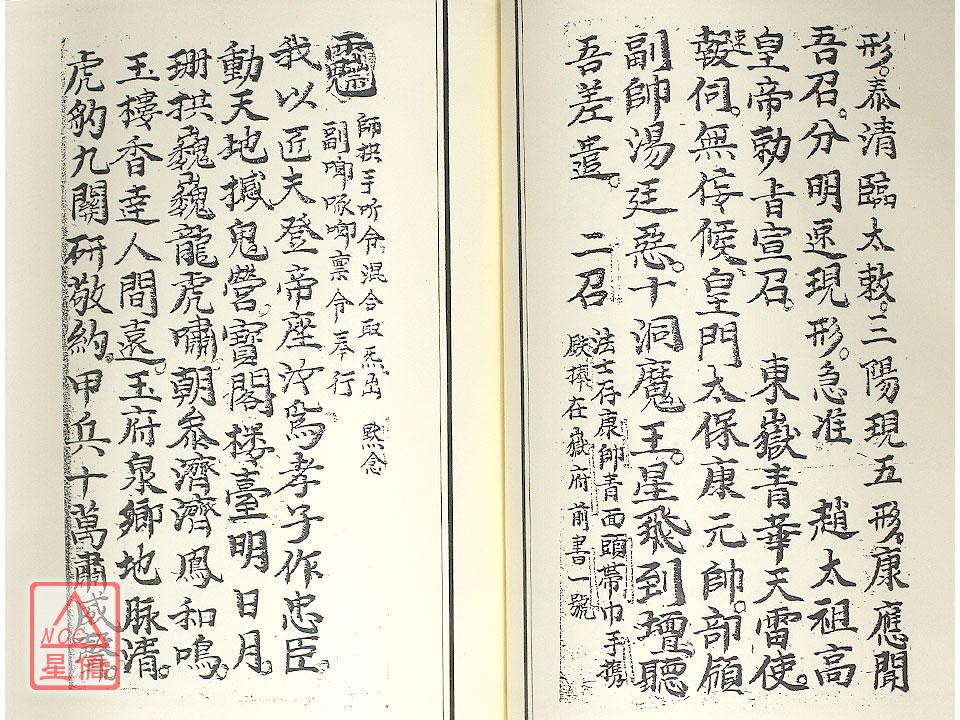 形。泰清臨太敕。三陽現五形。康應聞
吾召。分明速現形。急准　趙太祖高
皇帝勅旨宣召。　東嶽青華天雷使。
速報伺。無侫候皇門太保康元帥。部領
副帥湯廷惡。十洞魔王。星飛到壇聽
吾差遣。　二召
法士存康帥青面頭帶巾手携
鉄棒在嶽府前書一號
師拱手听令混合取炁出　默念
副啣啄啣禀令奉行
我以匠夫登帝座汝為孝子作忠臣。
動天地撼鬼營。寶閣樓臺明日月。
珊拱巍巍龍虎嘯。朝叅濟濟鳳和鳴。
玉樓香達人間遠。玉府泉鄉地脉清。
虎豹九關研敬約。甲兵十萬肅威聲。
NCC
星僑